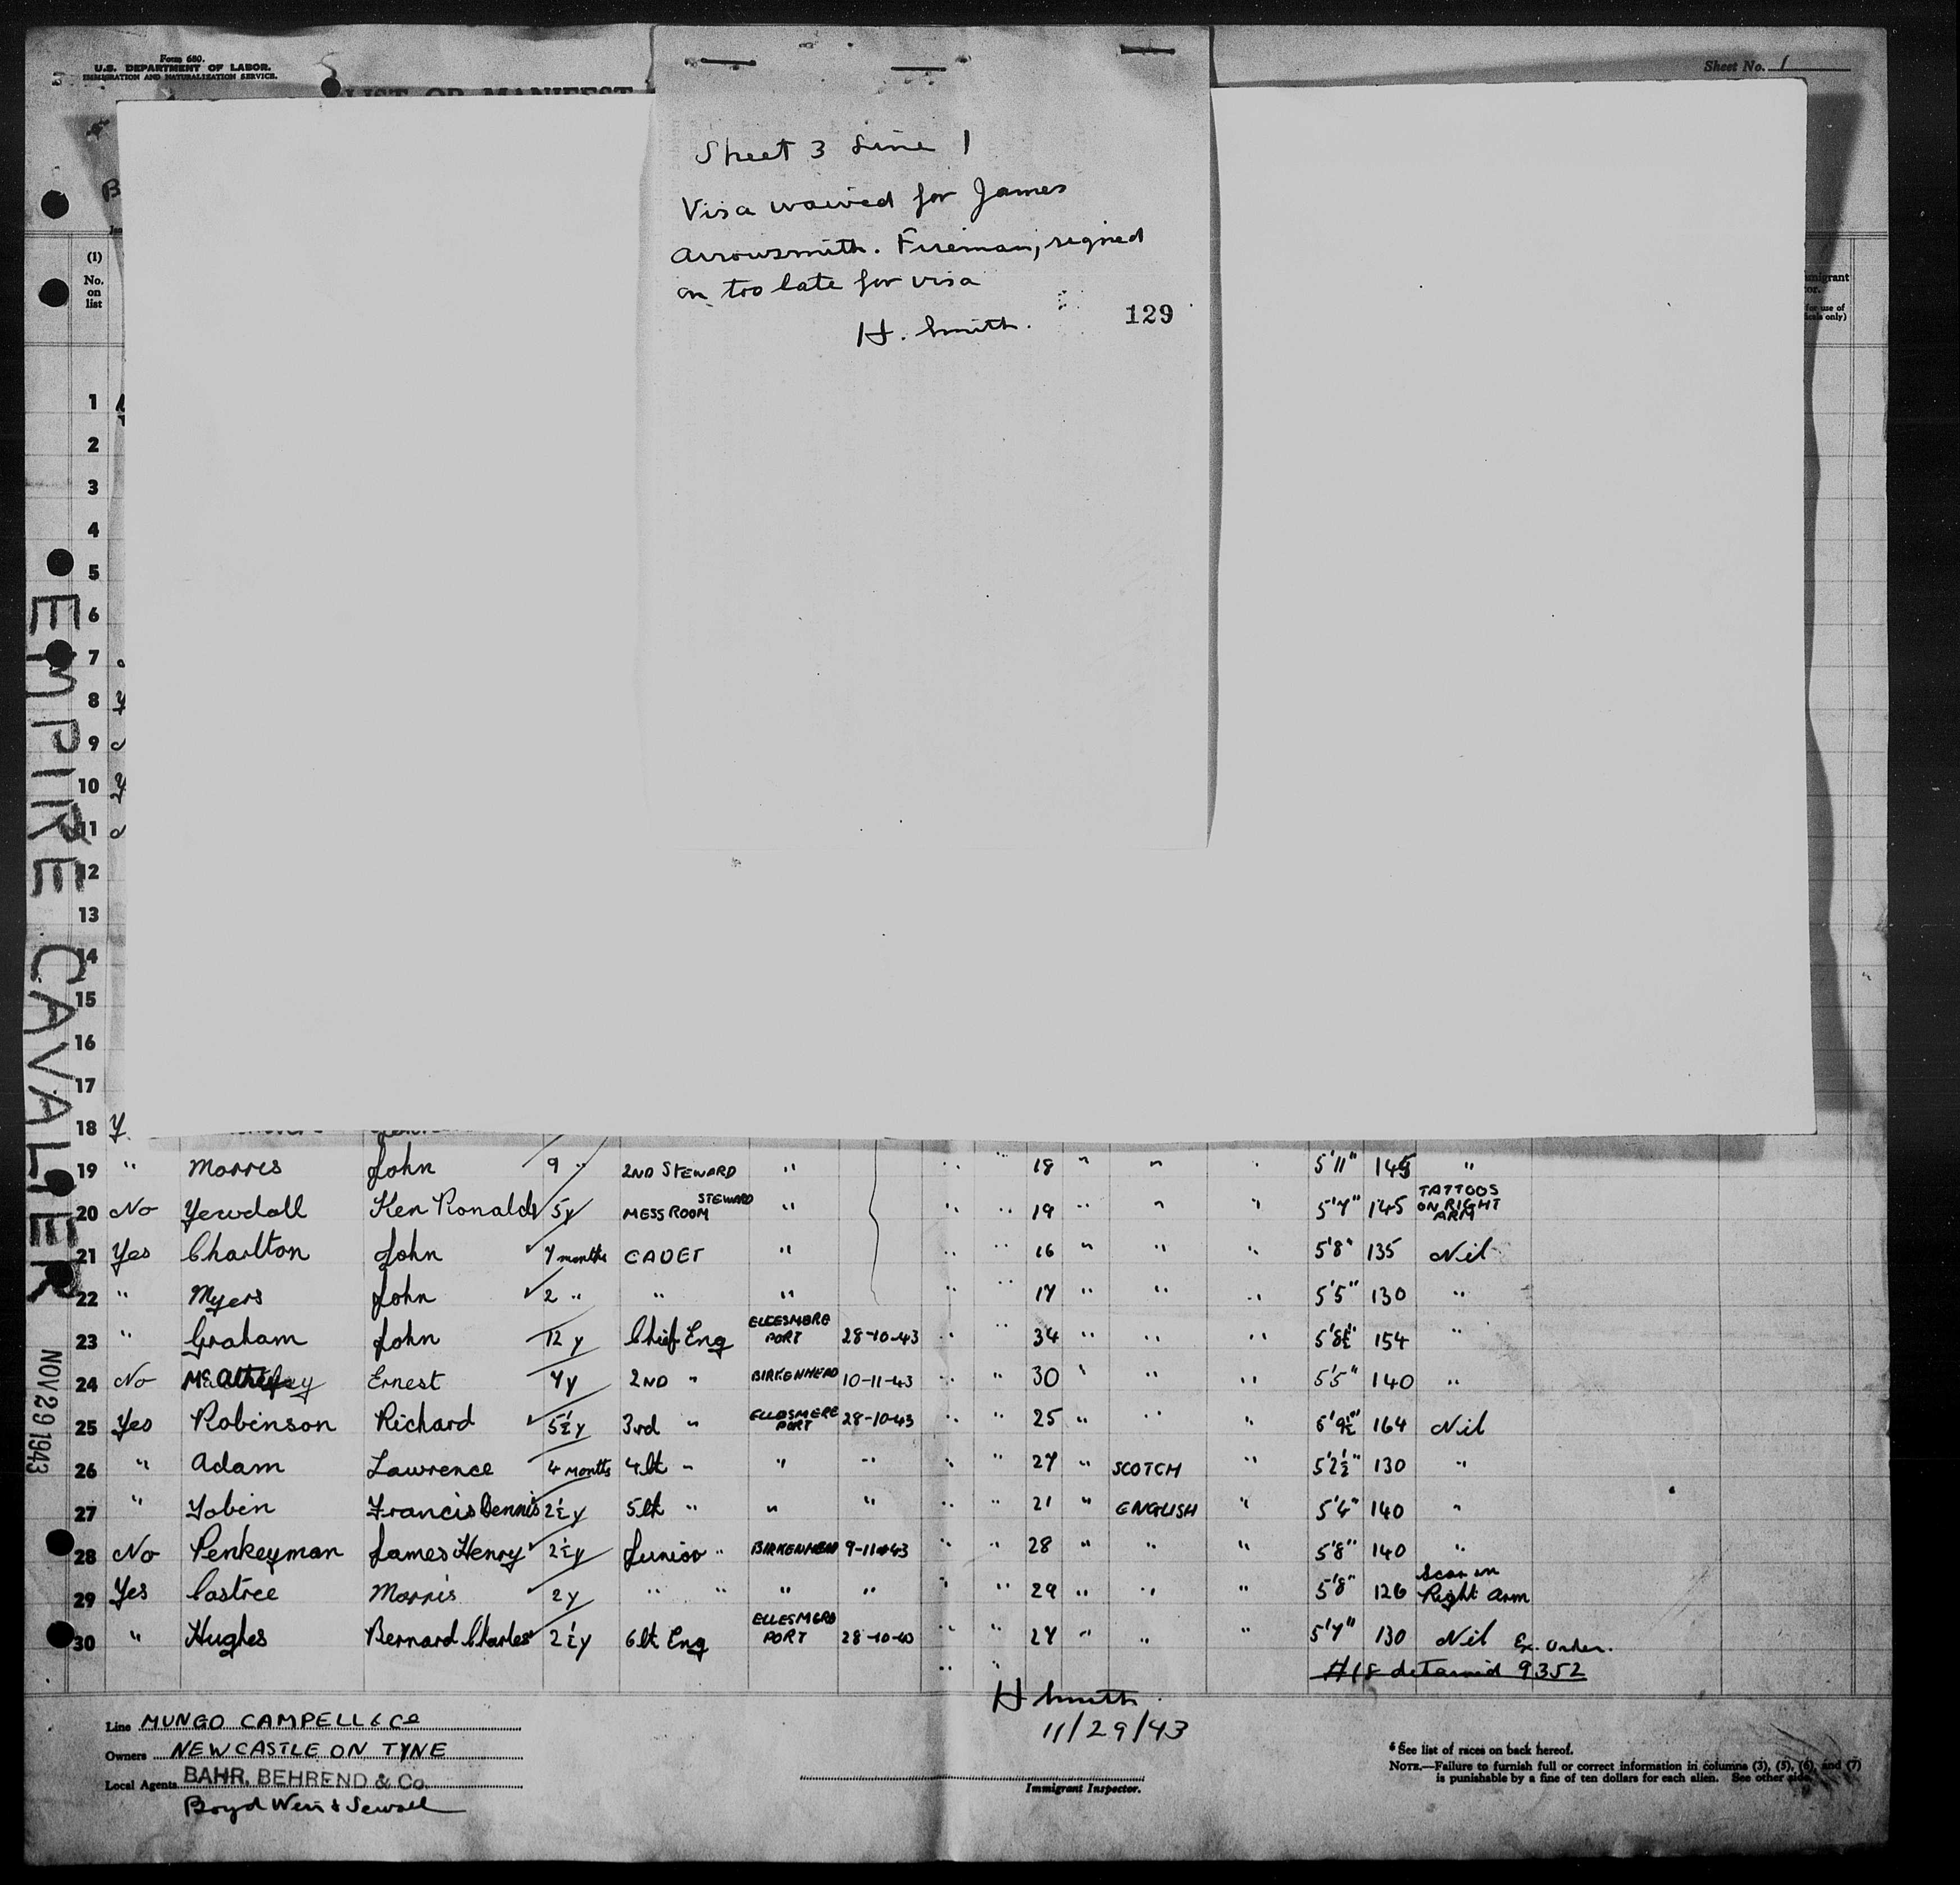 Form 680.
U.S. DEPARTMENT OF LABOR.
IMMIGRATION AND NATURALIZATION SERVICE.
LIST OR MANIFEST
Sheet No. 1
Sheet 3 Line 1
Visa waived for James
Arrowsmith. Fireman, signed
on too late for visa
H. Smith.
129
(1)
No.
on
list
EMPIRE CAVALIER
NOV 29 1943
1
2
3
4
5
6
7
8
9
10
11
12
13
14
15
16
17
18 Y
19 " Morris John 9 " 2ND STEWARD " " 18 " " " 5'11" 145 "
20 No Yewdall Ken Ronald 5y MESSROOM STEWARD " " " 19 " " " 5'7" 145 TATTOOS ON RIGHT ARM
21 Yes Charlton John 7 months CADET " " " 16 " " " 5'8" 135 Nil
22 " Myers John 2 " " " " " 17 " " " 5'5" 130 "
23 " Graham John 12 y Chief Eng ELLESMERE PORT 28-10-43 " " 34 " " " 5'8½" 154 "
24 No Ernest 7y 2ND " BIRKENHEAD 10-11-43 " " 30 " " " 5'5" 140 "
25 Yes Robinson Richard 5½y 3rd " ELLESMERE PORT 28-10-43 " " 25 " " " 164 Nil
26 " Adam Lawrence 4 months 4th " " " " " 27 " SCOTCH " 5'2½" 130 "
27 " Tobin Francis Dennis 2½y 5th " " " " " 21 " ENGLISH " 5'4" 140 "
28 No Penkeyman James Henry 2½y Junior " BIRKENHEAD 9-11-43 " " 28 " " " 5'8" 140 "
29 Yes Castree Morris 2y " " " " " " 29 " " " 5'8" 126 Scar on Right Arm
30 " Hughes Bernard Charles 2½y 6th Eng ELLESMERE PORT 28-10-43 " " 27 " " " 5'7" 130 Nil
Ex. Order.
#18 detained 9352
H Smith.
11/29/43
Immigrant Inspector.
Line MUNGO CAMPELL & Co
Owners NEWCASTLE ON TYNE
Local Agents BAHR, BEHREND & Co.
Boyd Weir & Sewell
⁶ See list of races on back hereof.
NOTE.—Failure to furnish full or correct information in columns (3), (5), (6), and (7)
is punishable by a fine of ten dollars for each alien. See other side.